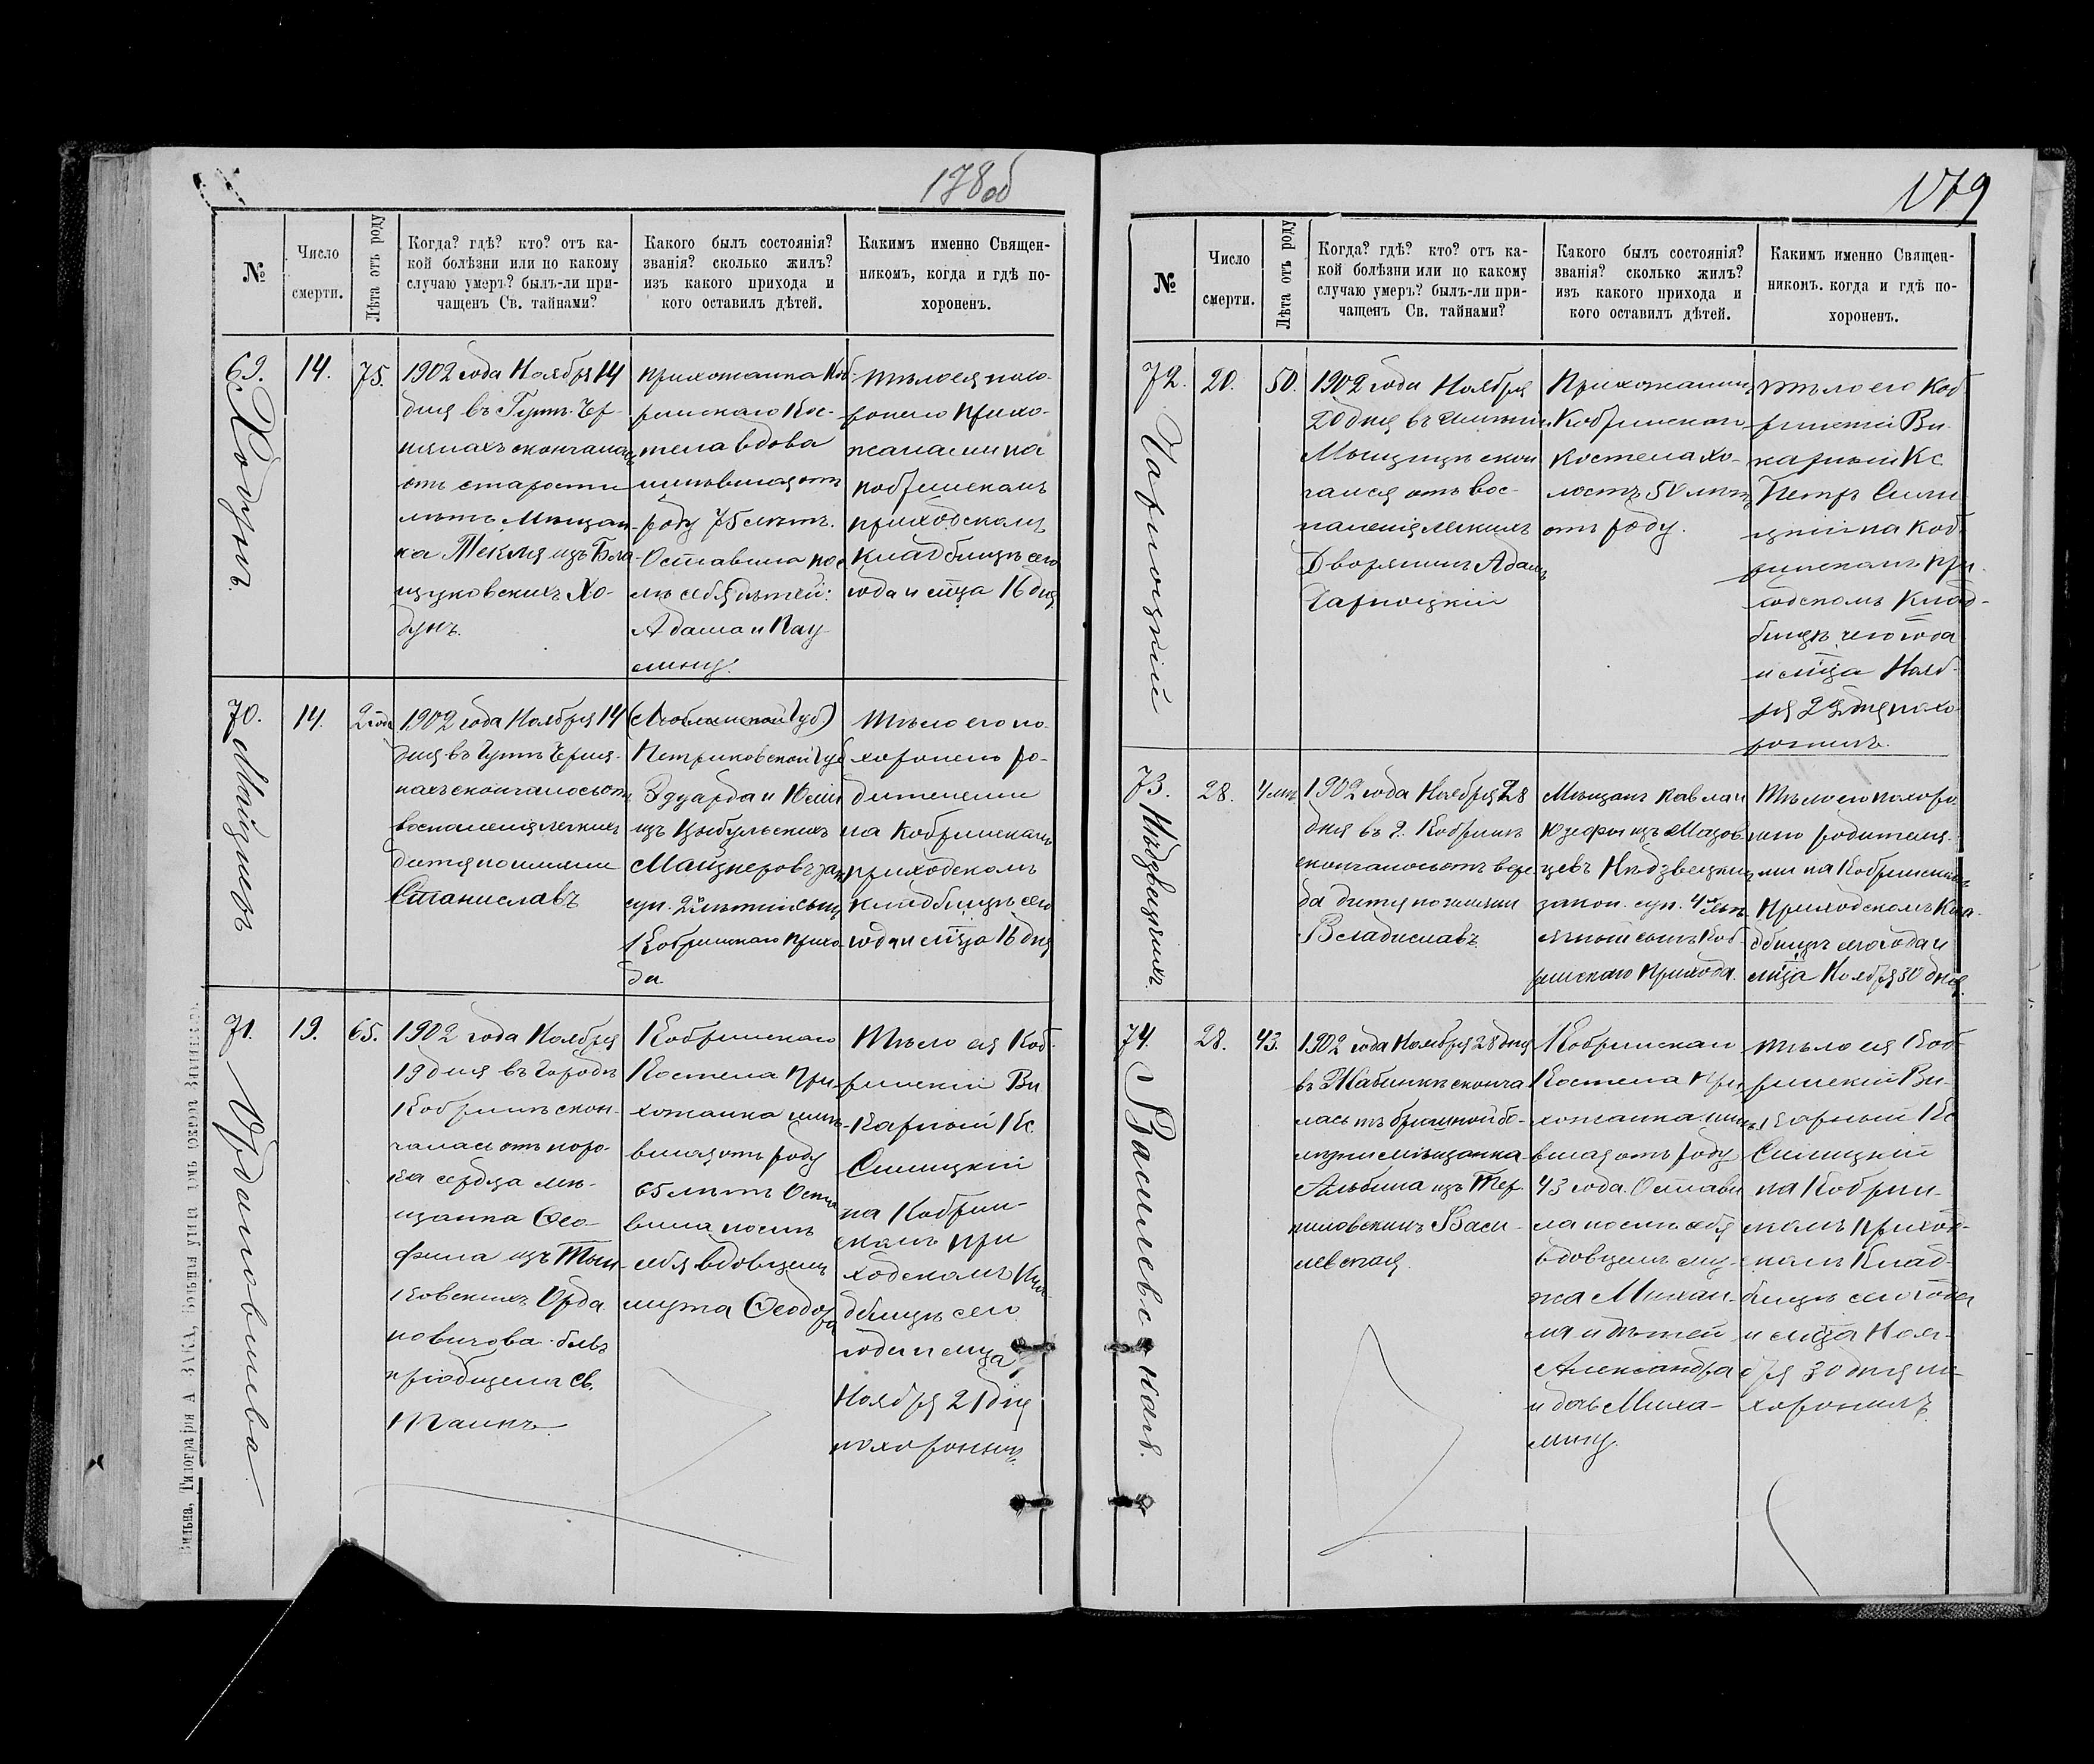 178об
№
Число
смерти.
Лѣта отъ роду
Когда? гдѣ? кто? отъ ка-
кой болѣзни или по какому
случаю умеръ? былъ-ли при-
чащенъ Св. тайнами?
Какого былъ состоянія?
званія? сколько жилъ?
изъ какого прихода и
кого оставилъ дѣтей.
Какимъ именно Священ-
никомъ, когда и гдѣ по-
хороненъ.
69.
Ходунъ.
14.
75.
1902 года Ноября 14
дня въ Гутѣ Чер-
нянахъ скончалась
отъ старости
лѣтъ Мѣщан-
ка Текля изъ
Хо-
дунъ.
прихожанка Коб-
ринскаго Кос-
тела вдова
имѣвшая отъ
роду 75 лѣтъ.
Оставила пос-
лѣ себя дѣтей:
Адама и Пау-
лину.
Тѣло ея похо-
ронено прихо-
жанами на
Кобринскомъ
приходскомъ
кладбищѣ сего
года и мѣца 16 дня
70.
14.
2 года
1902 года Ноября 14
дня въ Гутѣ Черня-
нахъ скончалось отъ
воспаленія легкихъ
дитя по имени
Станиславъ
(Люблинской Губ)
Петриковской Губ
Эдуарда и Юлии
изъ Цыбульскихъ
Майцнеровъ зак.
суп. 2лѣтній сынъ
Кобринскаго прихо-
да
Тѣло его по-
хоронено ро-
дителями
на Кобринскомъ
приходскомъ
кладбищѣ сего
года и мѣца 16 дня
71.
Урдановичева
19.
65.
1902 года Ноября
19 дня въ Городѣ
Кобринѣ скон-
чалась отъ поро-
ка сердца мѣ-
щанка Ѳео-
фила изъ
ковскихъ Урда-
новичева была
пріобщена Св.
Таинъ.
Кобринскаго
Костела при-
хожанка имѣ-
вшая отъ роду
65 лѣтъ Оста-
вила послѣ
себя вдовцемъ
мужа Ѳеодора
Тѣло ея Коб-
ринскій Ви-
карный Кс.
Силицкій
на Кобрин-
скомъ при-
ходскомъ кла-
дбищѣ сего
года и мѣца
Ноября 21 дня
похоронилъ.
Вильна, Типографія А. ЗАКА, Большая улица
179
№
Число
смерти.
Лѣта отъ роду
Когда? гдѣ? кто? отъ ка-
кой болѣзни или по какому
случаю умеръ? былъ-ли при-
чащенъ Св. тайнами?
Какого былъ состоянія?
званія? сколько жилъ?
изъ какого прихода и
кого оставилъ дѣтей.
Какимъ именно Священ-
никомъ. когда и гдѣ по-
хороненъ.
72.
Чарноцкій
20.
50.
1902 года Ноября
20 дня въ имѣніи
Мыщицѣ скон-
чался отъ вос-
паленія легкихъ
Дворянинъ Адамъ
Чарноцкій
Прихожанинъ
Кобринскаго
Костела хо-
лостъ 50 лѣтъ
отъ роду.
Тѣло его Коб-
ринскій Ви-
карный Кс
Петръ Сили-
цкій на Коб-
ринскомъ при-
ходскомъ клад-
бищѣ сего года
и мѣца Нояб-
ря 22 дня похо-
ронилъ.
73.
Нѣдзвецкихъ.
28.
4 мѣс
1902 года Ноября 28
дня въ г. Кобринѣ
скончалось отъ вере-
да дитя по имени
Владиславъ
Мѣщанъ Павла и
Юзефы изъ Мазов-
цевъ Нѣдзвецкихъ
закон. суп. 4 мѣс-
ячный сынъ Коб-
ринскаго прихода.
Тѣло его похоро-
нено родителя-
ми на Кобринскомъ
Приходскомъ Кла-
дбищѣ сего года и
мѣца Ноября 30 дня.
74.
Василевская.
28.
43.
1902 года Ноября 28 дня
въ Жабинкѣ сконча-
лась отъ брюшной бо-
лѣзни мѣщанка
Альбина изъ Тер-
пиловскихъ Васи-
левская.
Кобринскаго
Костела при-
хожанка имѣ-
вшая отъ роду
43 года. Остави-
ла послѣ себя
вдовцемъ му-
жа Михаи-
ла и дѣтей
Александра
и дочь Миха-
лину.
Тѣло ея Коб-
ринскій Ви-
карный Кс
Силицкій
на Кобрин-
скомъ приход-
скомъ Клад-
бищѣ сего года
и мѣца Ноя-
бря 30 дня по-
хоронилъ.